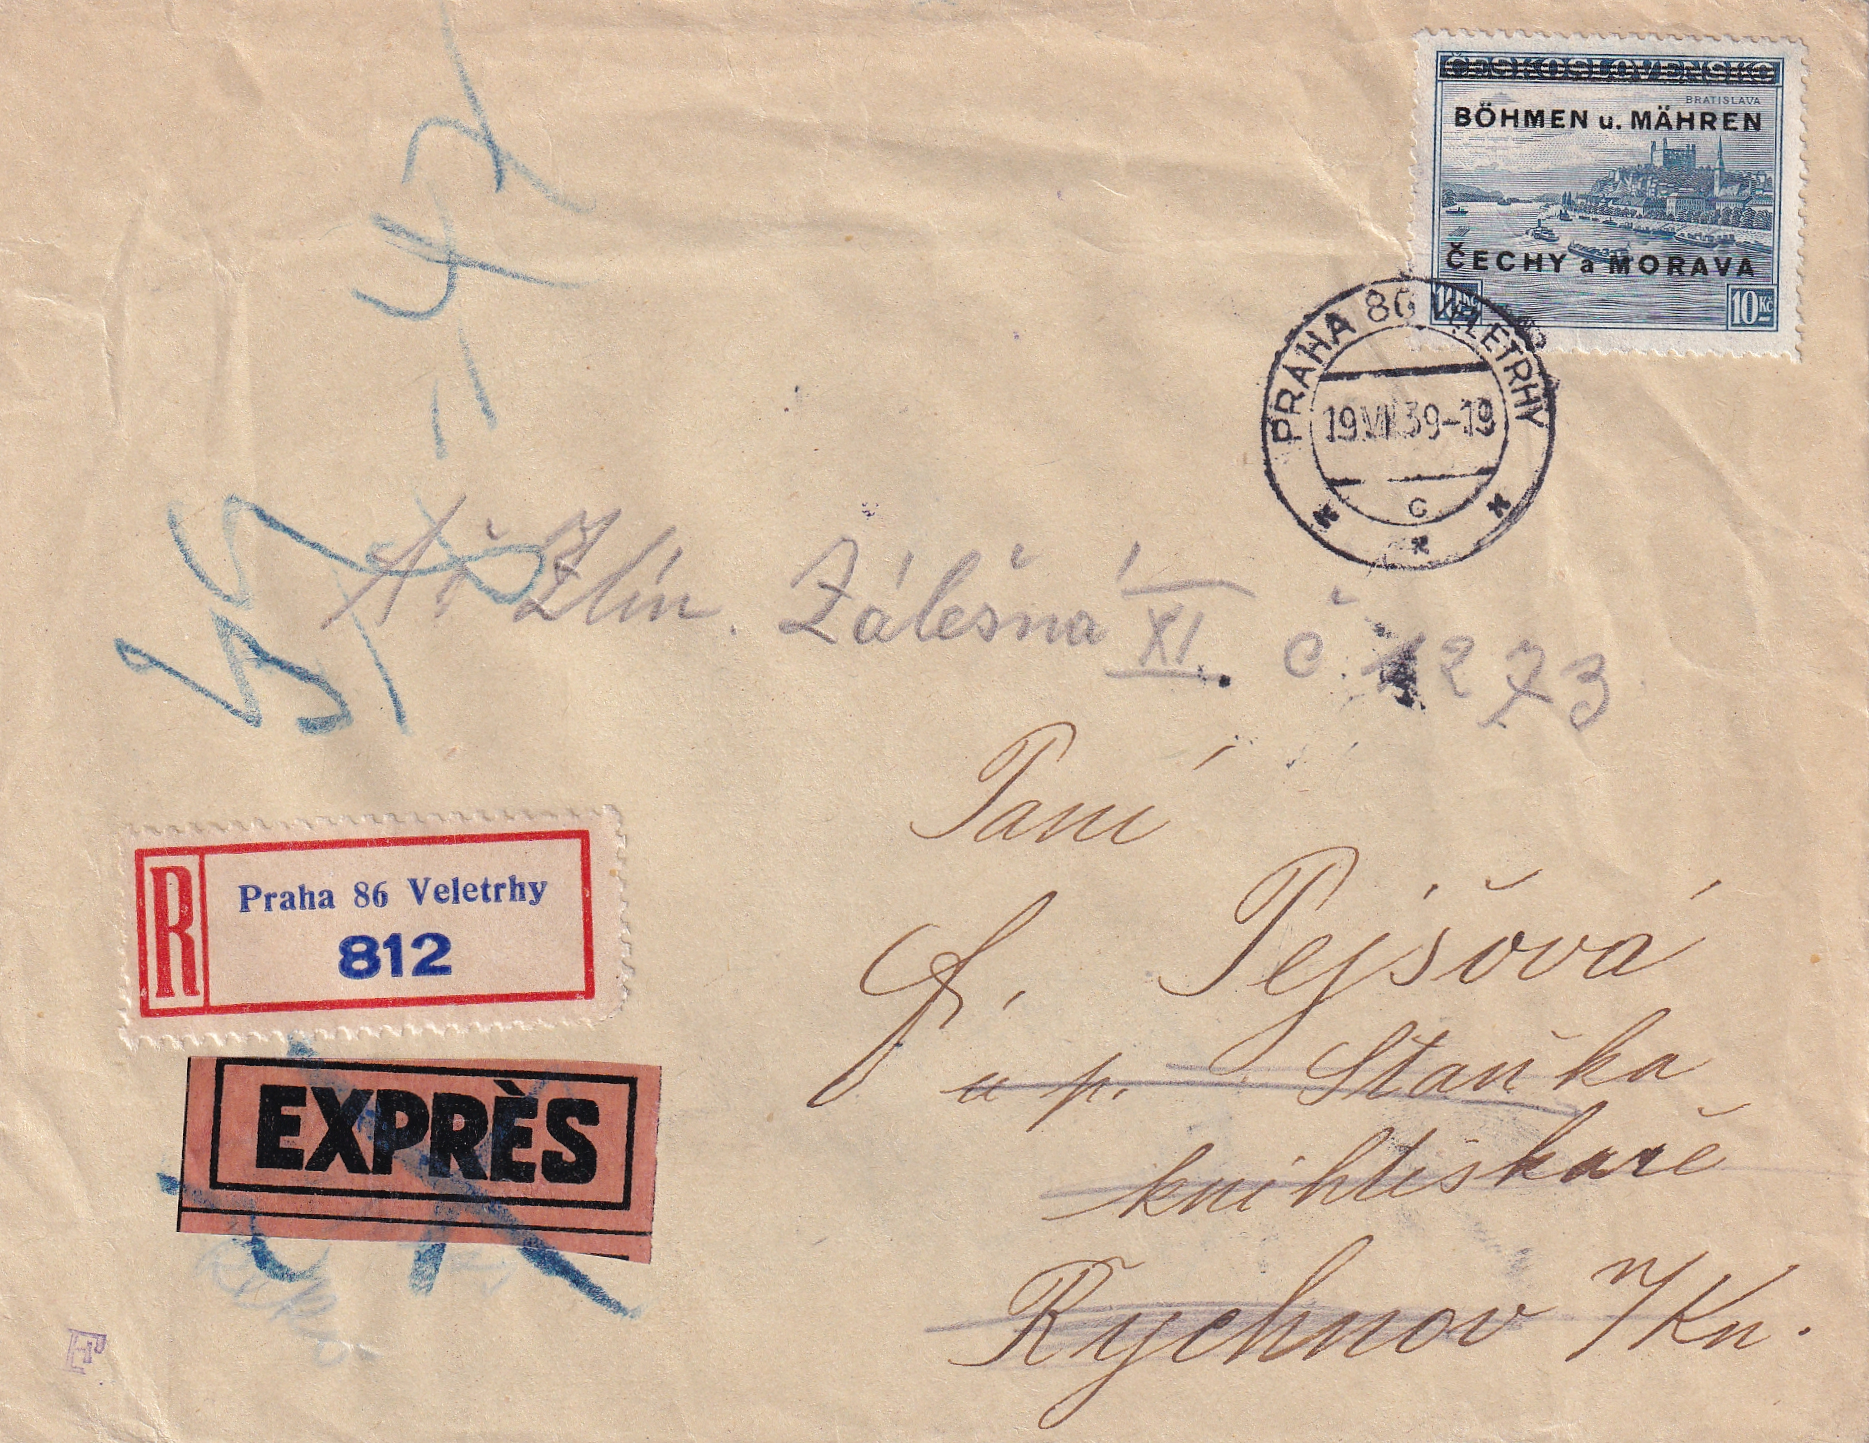 ČESKOSLOVENSKO
BRATISLAVA
BÖHMEN u. MÄHREN
ČECHY a MORAVA
10 Kč
10 Kč
PRAHA 86 VELETRHY
19.VII.39-19
c
Zlín. Zálešná XI. č. 1273
Paní
Pejšová
u p. Staňka
knihtiskaře
Rychnov n/Kn.
R
Praha 86 Veletrhy
812
EXPRÈS